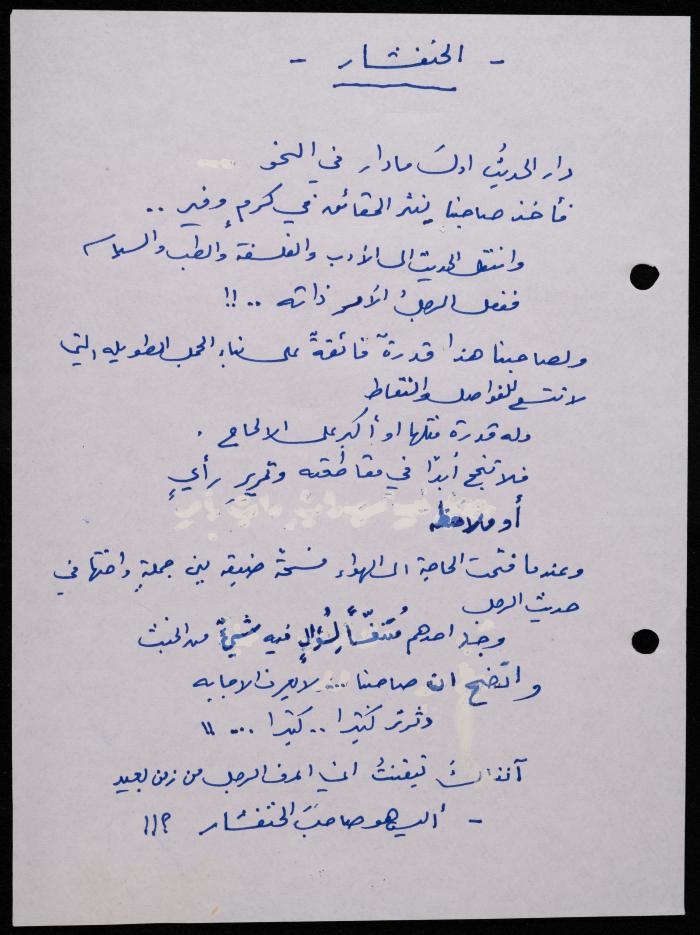 - الخنفشار -
دار الحديثُ اولَ مادار في النحو
فأخذ صاحبنا ينثر الحقائق في كرمٍ وفير ..
وانتقل الحديث الى الأدب والفلسفة والطب والسياسه
ففعل الرجلُ الأمر ذاته .. !!
ولصاحبنا هذا قدرةٌ فائقةٌ على بناء الجمل الطويله التي
لا تتسع للفواصل والنقاط
وله قدرة مثلها او أكبر على الالحاح .
فلا تنجح أبدًا في مقاطعته وتمرير رأيٍ
أو ملاحظه
وعندما فتحت الحاجة الى الهواء فسحةً ضيقه بين جملةٍ واختها في
حديث الرجل
وجد احدهم مُتنفّساً لِسُؤالٍ فيه شيءٌ من الخبث
واتّضح ان صاحبنا ... لا يعرف الاجابه
وثرثر كثيرا .. كثيرا ... !!
آنذاكَ تيقنتُ اني اعرف الرجل من زمن بعيد
- أليس هو صاحبَ الخنفشار ؟!!